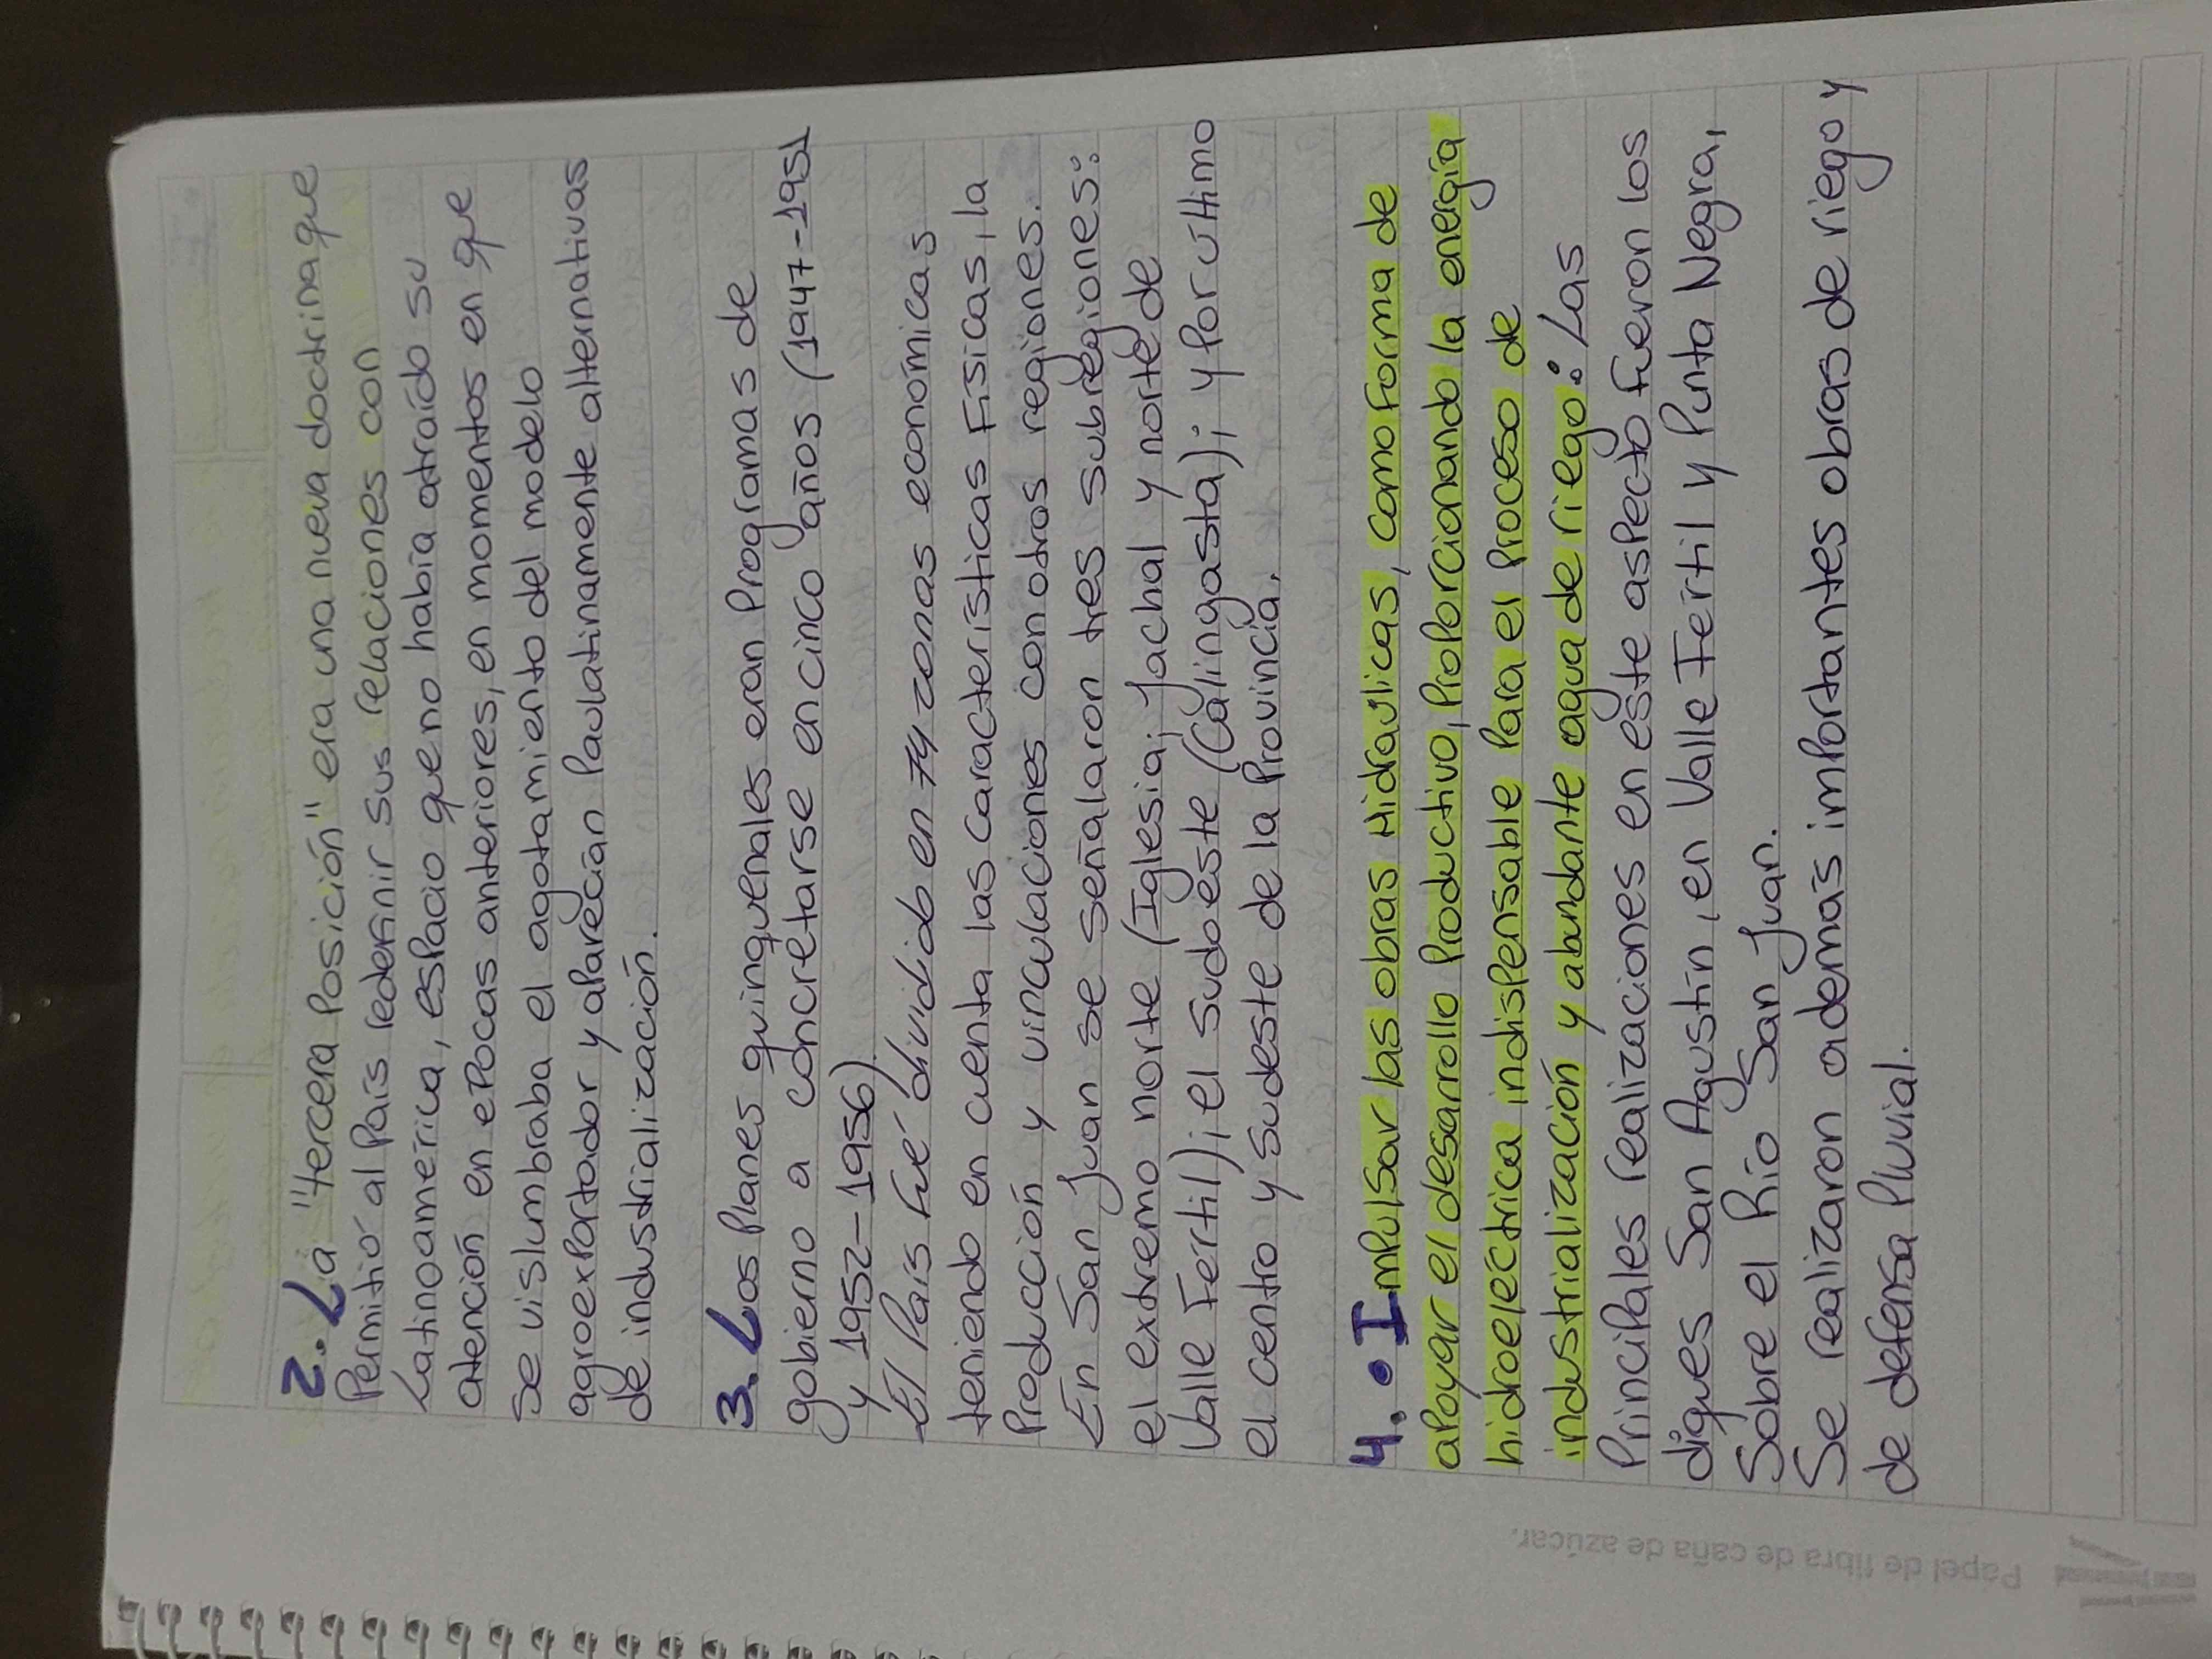 2. La "tercera Posición" era una nueva doctrina que
Permitió al País redefinir sus relaciones con
Latinoamérica, espacio que no había atraído su
atención en epocas anteriores, en momentos en que
se vislumbraba el agotamiento del modelo
agroexportador y aparecían Paulatinamente alternativas
de industrialización.
3. Los Planes quinquenales eran Programas de
gobierno a concretarse en cinco años (1947-1951
y 1952-1956).
El País fué dividido en 74 zonas económicas
teniendo en cuenta las características Físicas, la
Producción y vinculaciones con otros regiones.
En San Juan se señalaron tres subregiones:
el extremo norte (Iglesia; Jachal y norte de
Valle Fértil); el sudoeste (Calingasta); y Por ultimo
el centro y sudeste de la Provincia.
4. • Impulsar las obras Hidraúlicas, como Forma de
apoyar el desarrollo Productivo, Proporcionando la energía
hidroeléctrica indispensable Para el Proceso de
industrialización y abundante agua de riego: Las
Principales realizaciones en este aspecto fueron los
diques San Agustín, en Valle Fértil y Punta Negra,
Sobre el Río San Juan.
Se realizaron además importantes obras de riego y
de defensa Pluvial.
Papel de fibra de caña de azúcar.